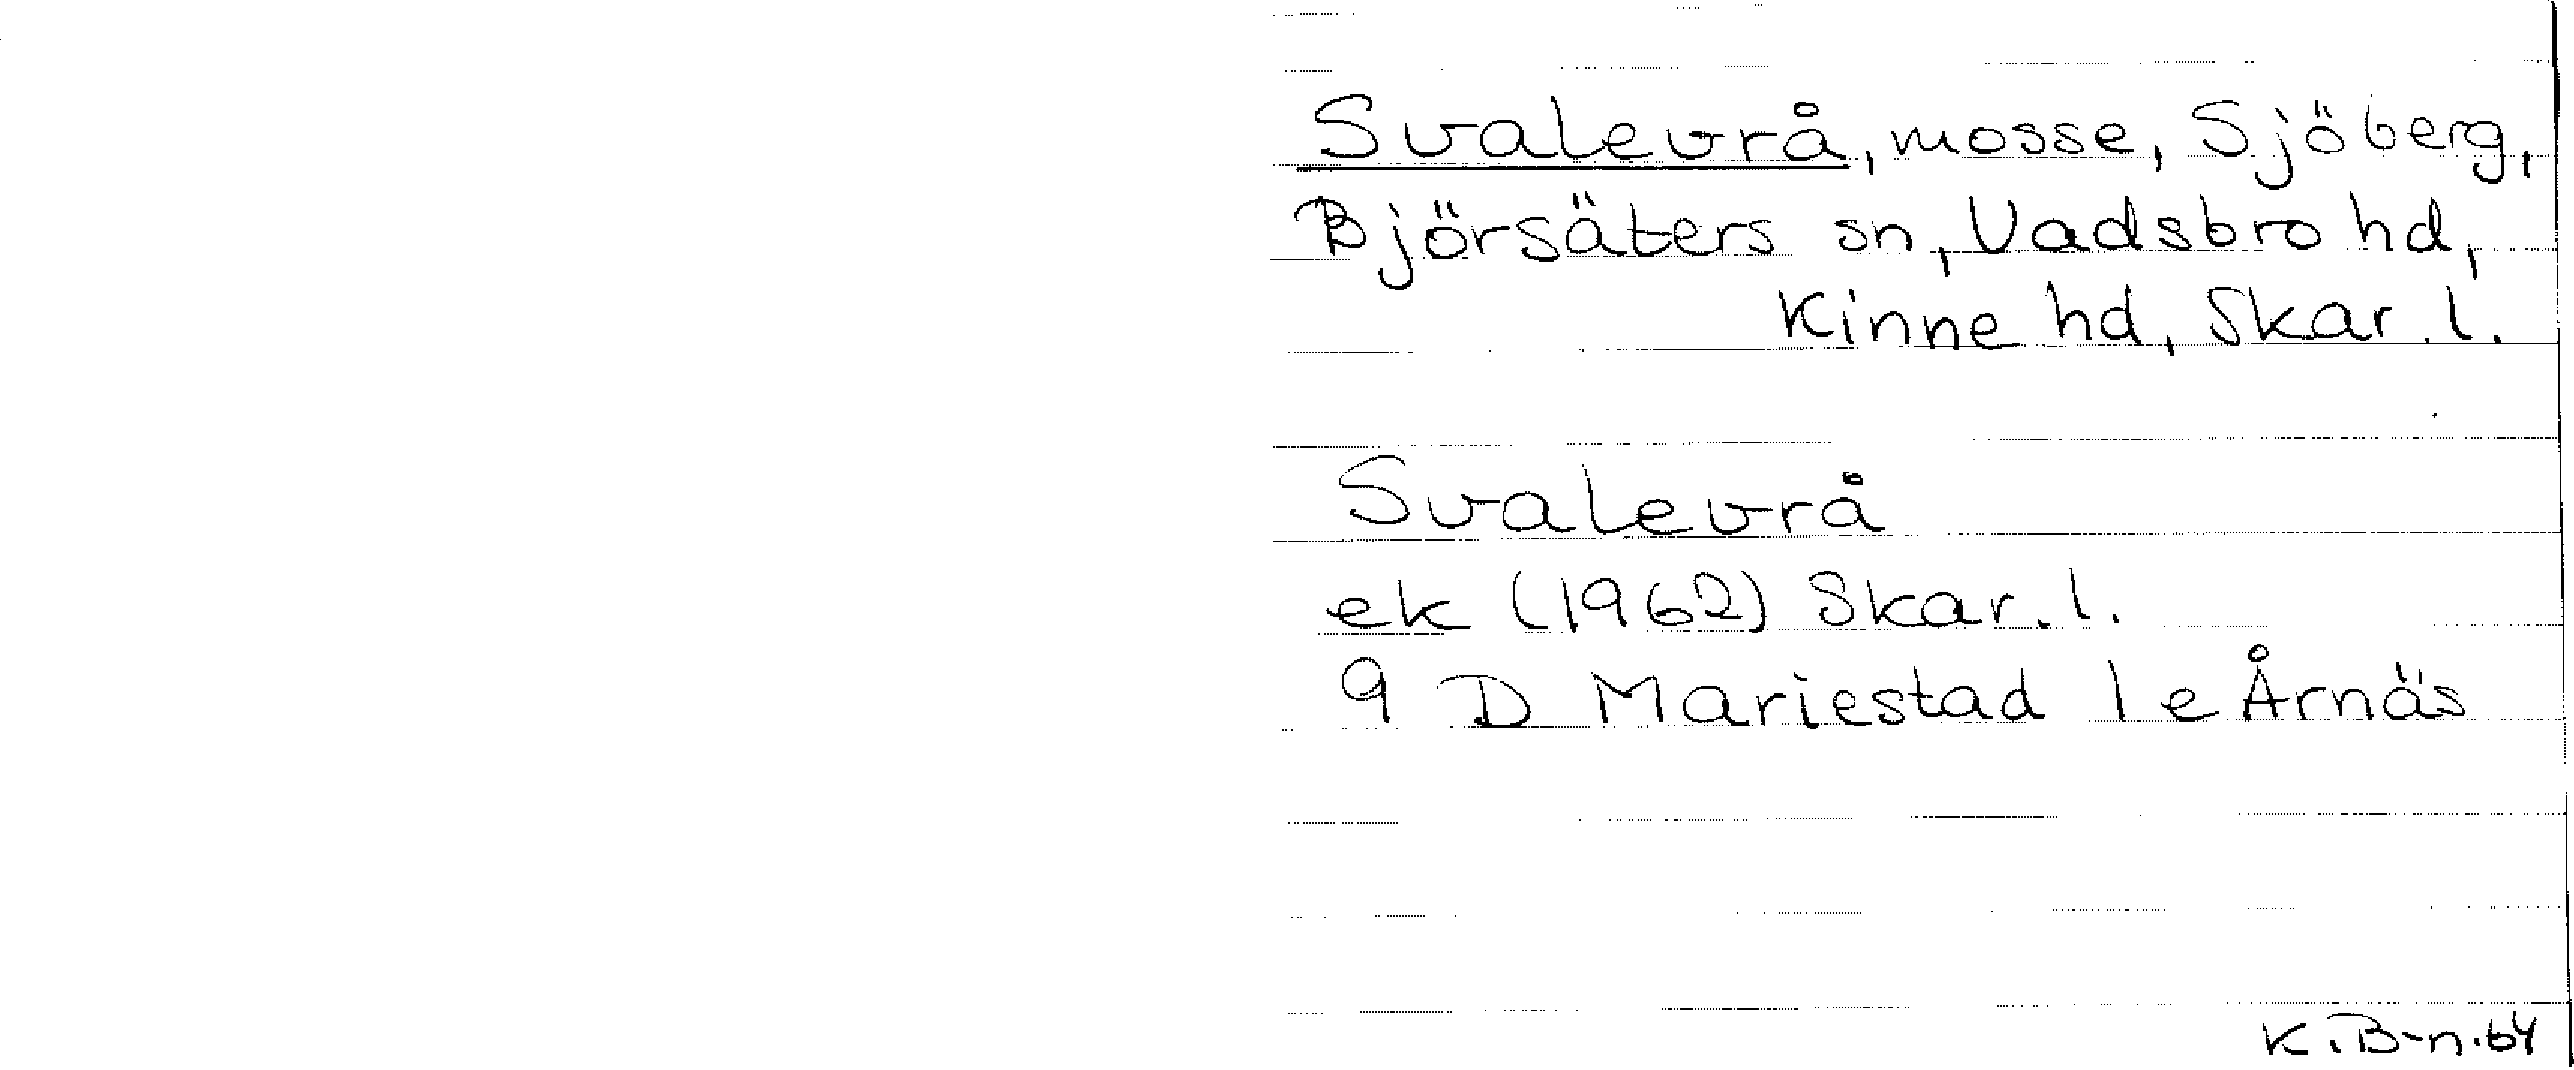 Svalevrå, mosse, Sjöberg,
Björsäters sn, Vadsbro hd,
Kinne hd, Skar. l.
Svalevrå
ek (1962) Skar. l.
9 D Mariestad 1 e Årnäs
K. B-n. 64